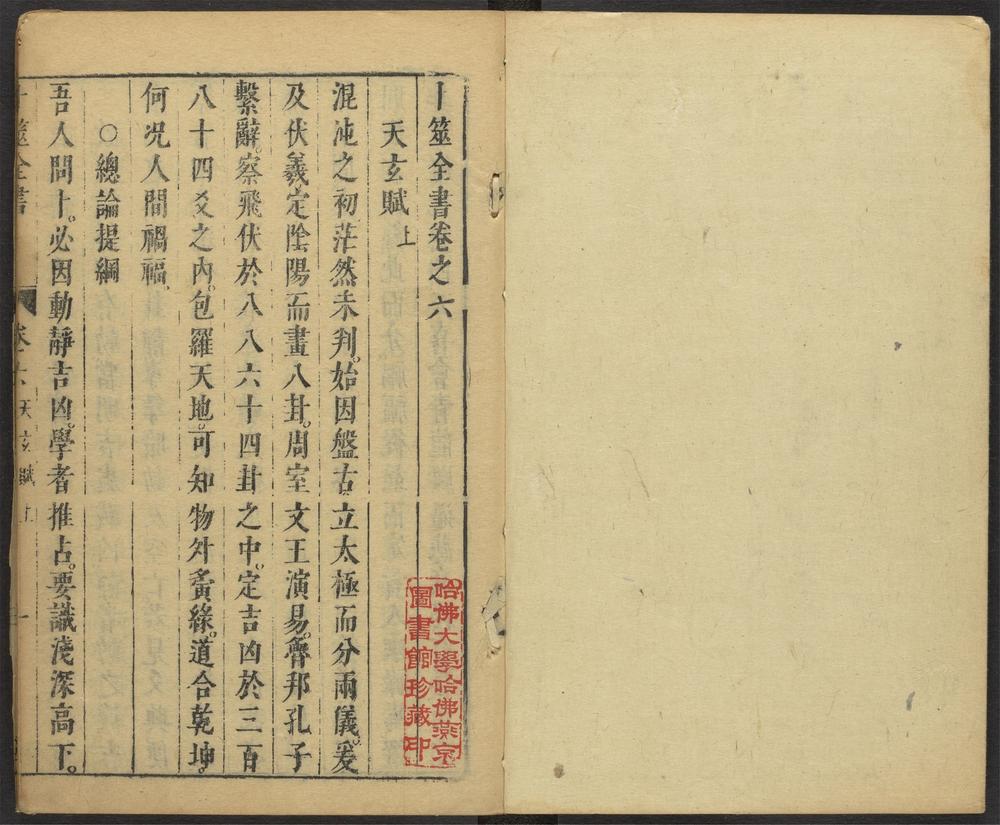 卜筮全書卷之六
天玄賦上
混沌之初茫然未判。始因盤古。立太極而分兩儀。爰
及伏羲。定陰陽而畫八卦。周室文王演易。魯邦孔子
繫辭。察飛伏於八八六十四卦之中。定吉凶於三百
八十四爻之內。包羅天地。可知物外夤緣。道合乾坤。
何況人間禍福。
○總論提綱
吾人問卜。必因動靜吉凶。學者推占。要識淺深高下。
卜筮全書 卷六 天玄賦上 一
哈佛大學哈佛燕京
圖書館珍藏印